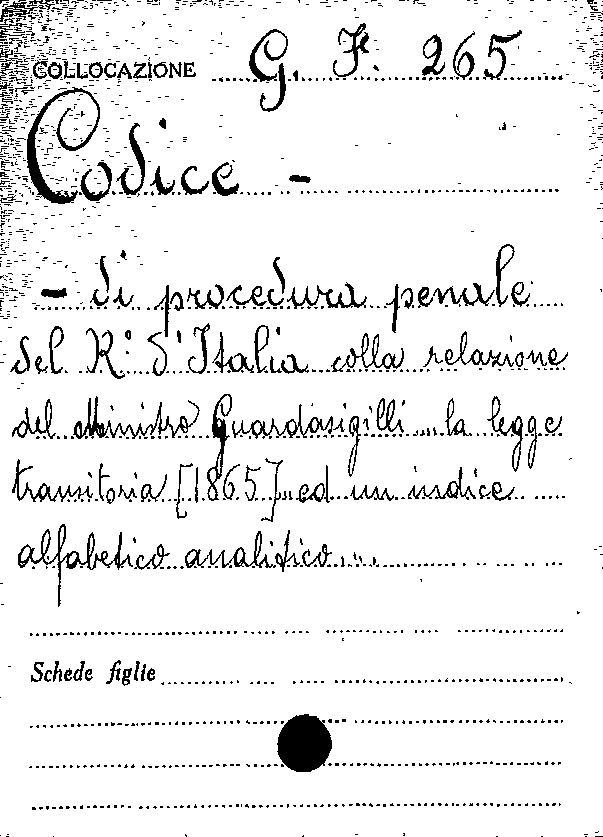 COLLOCAZIONE G. F. 265
Codice -
- di procedura penale
del R.° d'Italia colla relazione
del Ministro Guardasigilli... la legge
transitoria [1865]... ed un indice
alfabetico analitico...
Schede figlie